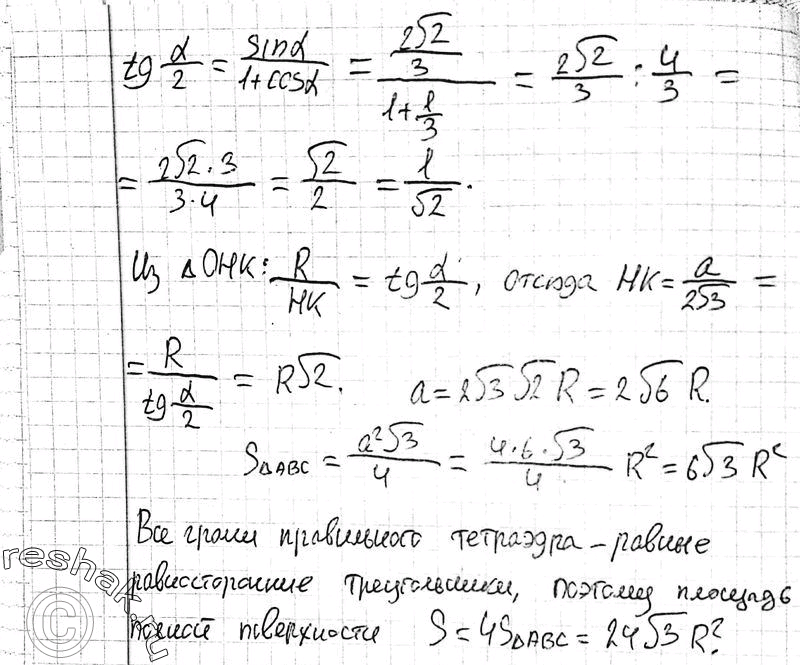 tg α/2 = sinα/(1+cosα) = (2√2/3)/(1+1/3) = 2√2/3 : 4/3 =
= 2√2·3/(3·4) = √2/2 = 1/√2.
Из △OHK: R/HK = tg α/2, отсюда HK = a/(2√3) =
= R/(tg α/2) = R√2. a = 2√3√2 R = 2√6 R.
S△ABC = a²√3/4 = 4·6·√3/4 R² = 6√3 R²
Все грани правильного тетраэдра – равные
равносторонние треугольники, поэтому площадь
полной поверхности S = 4S△ABC = 24√3 R².
reshak.ru
©